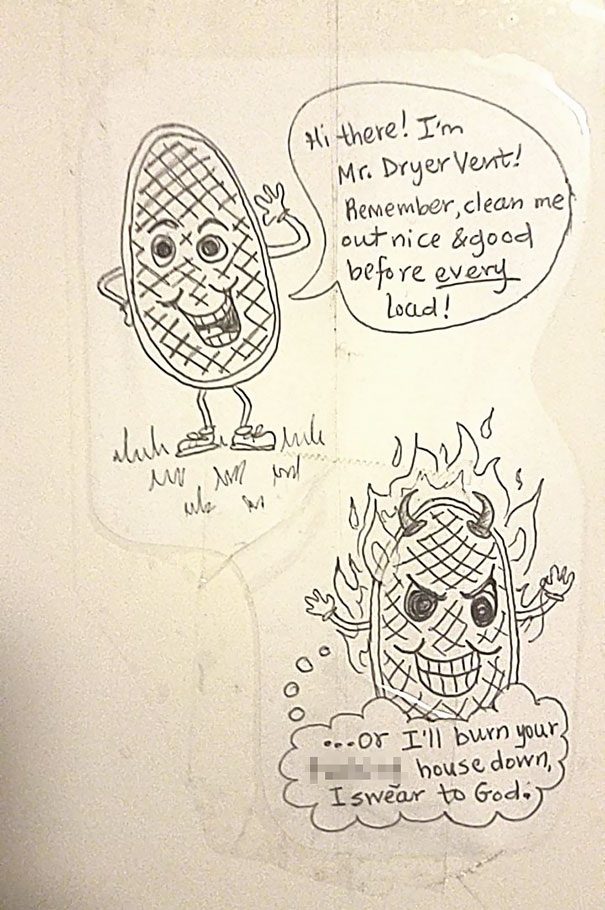 Hi there! I'm
Mr. Dryer Vent!
Remember, clean me
out nice & good
before every
load!
...or I'll burn your
house down,
I swear to God.